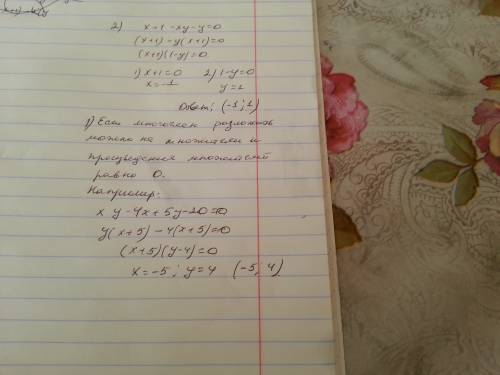 2) x+1-xy-y=0
(x+1)-y(x+1)=0
(x+1)(1-y)=0
1) x+1=0 2) 1-y=0
x=-1 y=1
Ответ: (-1;1)
1) Если многочлен разложить
можно на множители и
произведения множителей
равно 0.
Например:
xy-4x+5y-20=0
y(x+5)-4(x+5)=0
(x+5)(y-4)=0
x=-5; y=4 (-5; 4)